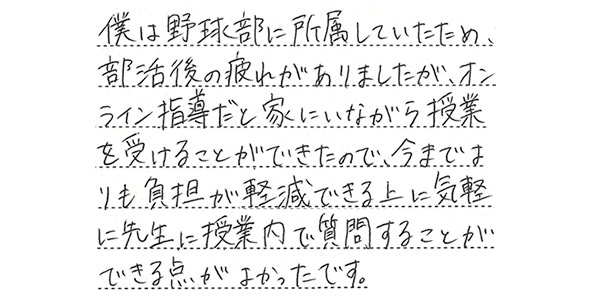 僕は野球部に所属していたため、
部活後の疲れがありましたが、オン
ライン指導だと家にいながら授業
を受けることができたので、今までよ
りも負担が軽減できる上に気軽
に先生に授業内で質問することが
できる点がよかったです。